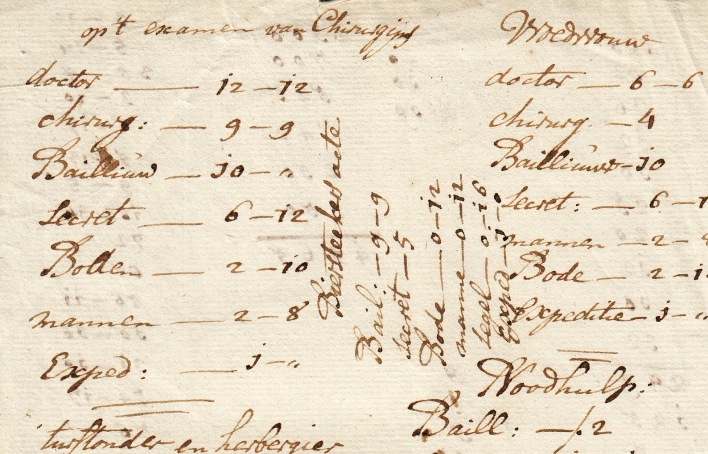 op't examen van Chirurgijns
doctor — 12 – 12
chirurg: — 9 – 9
Bailliuw — 10 – "
Secret — 6 – 12
Boden — 2 – 10
mannen — 2 – 8
Exped: — 1 – "
turftonder en herbergier
acte
Bail: – 9 – 9
Secret – 5
Bode – 0 – 12
manne – 0 – 12
segel – 0 – 16
Exped – 1 – 0
Vroedvrouw
doctor — 6 – 6
chirurg. — 4
Bailliuw – 10
Secret: — 6 –
mannen – 2 –
Bode — 2 –
Expeditie – 1 – "
Noodhulp:
Baill: —